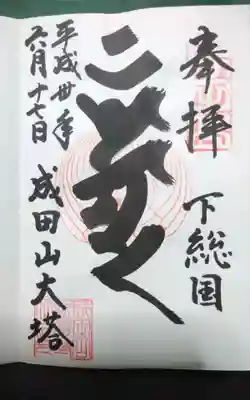 奉拝
下総国
平成卅年
六月十七日
成田山大塔